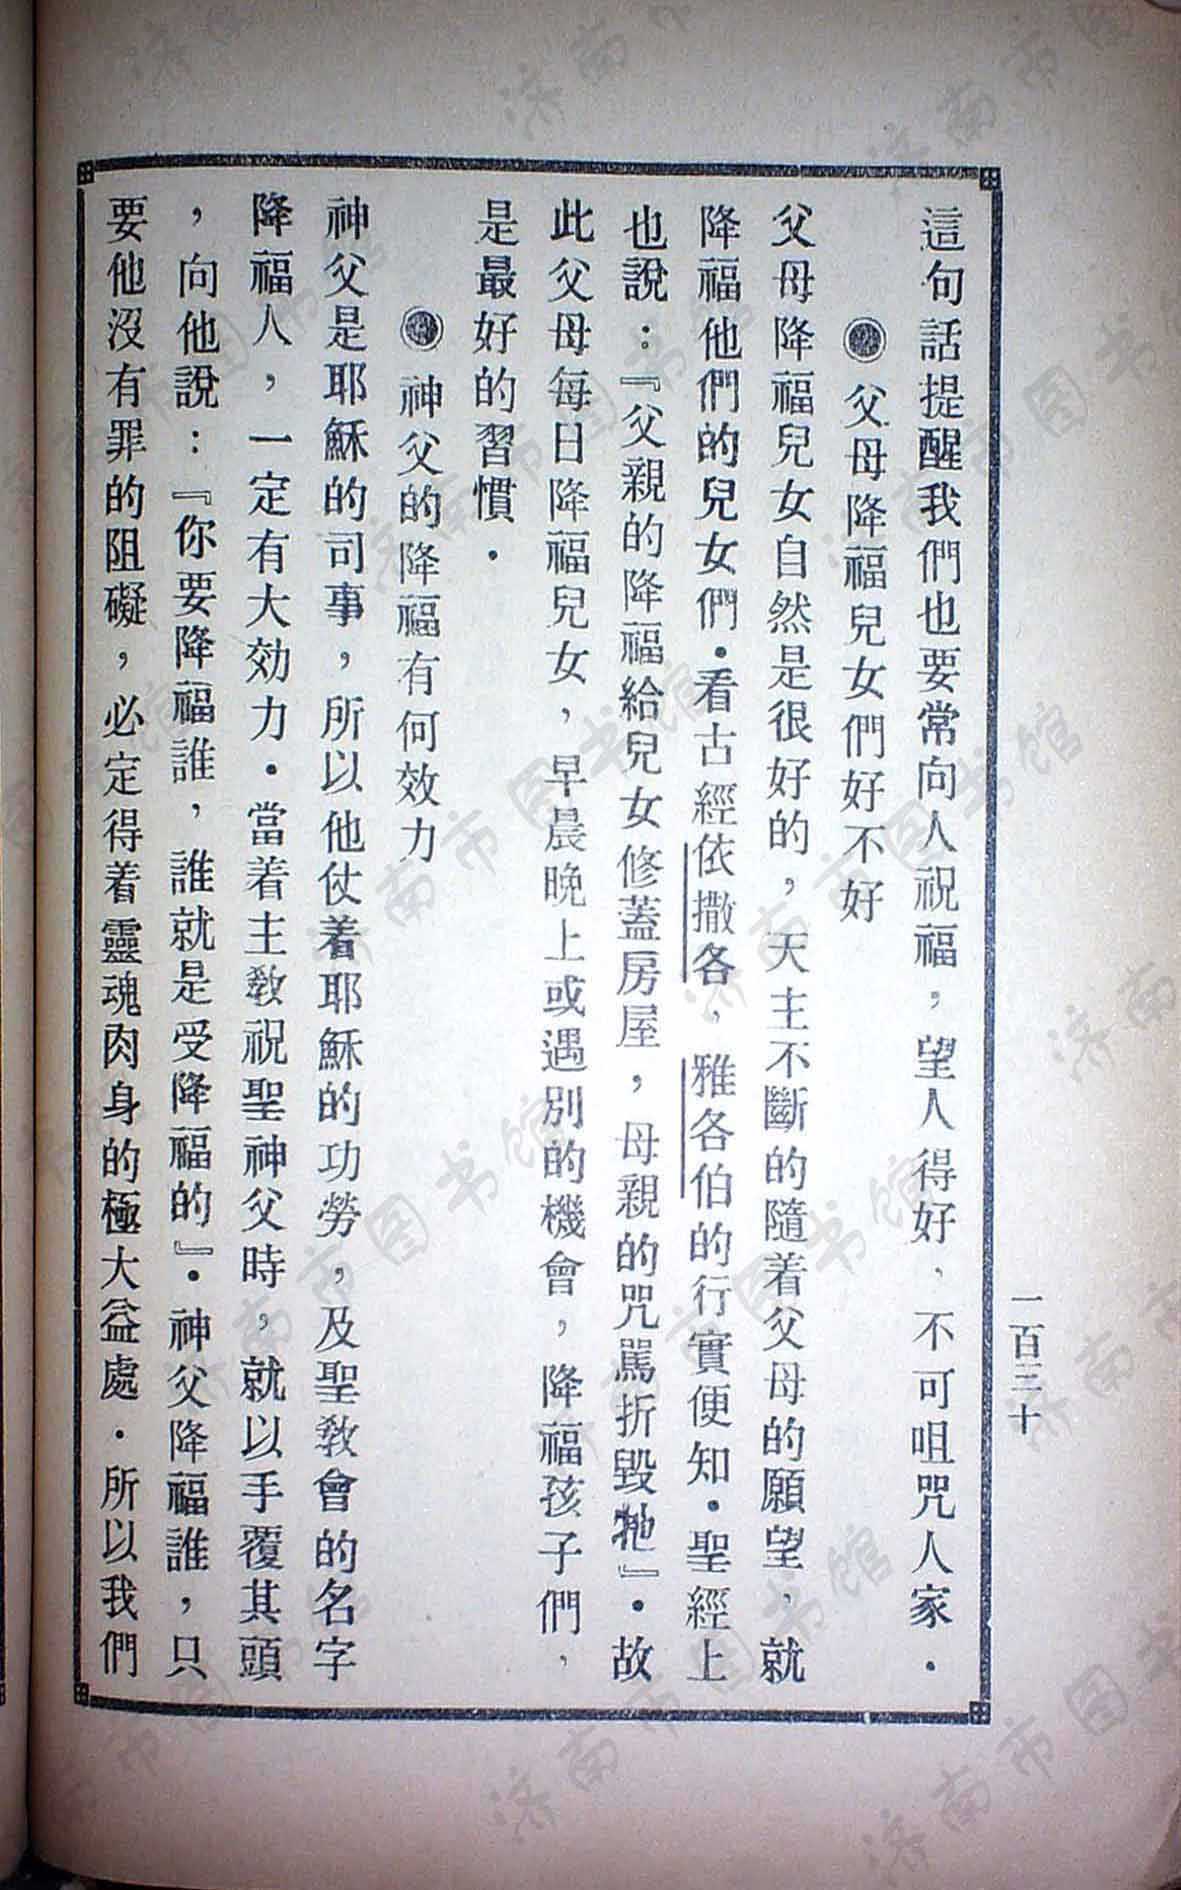 這句話提醒我們也要常向人祝福，望人得好、不可咀咒人家．
◉ 父母降福兒女們好不好
父母降福兒女自然是很好的，天主不斷的隨着父母的願望，就
降福他們的兒女們．看古經依撒各，雅各伯的行實便知．聖經上
也說：『父親的降福給兒女修蓋房屋，母親的咒駡折毀牠』．故
此父母每日降福兒女，早晨晚上或遇別的機會，降福孩子們，
是最好的習慣．
◉ 神父的降福有何效力
神父是耶穌的司事，所以他仗着耶穌的功勞，及聖敎會的名字
降福人，一定有大効力．當着主敎祝聖神父時，就以手覆其頭
，向他說：『你要降福誰，誰就是受降福的』．神父降福誰，只
要他沒有罪的阻礙，必定得着靈魂肉身的極大益處．所以我們
一百三十
济南市图书馆